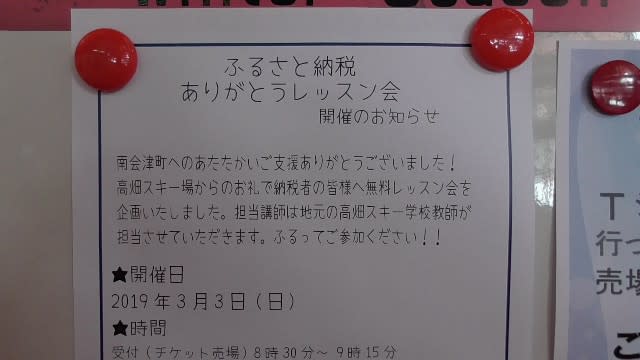 Winter Season
ふるさと納税
ありがとうレッスン会
開催のお知らせ
南会津町へのあたたかいご支援ありがとうございました！
高畑スキー場からのお礼で納税者の皆様へ無料レッスン会を
企画いたしました。担当講師は地元の高畑スキー学校教師が
担当させていただきます。ふるってご参加ください！！
★開催日
2019年３月３日（日）
★時間
受付（チケット売場）８時30分～ ９時15分
行つ
売場